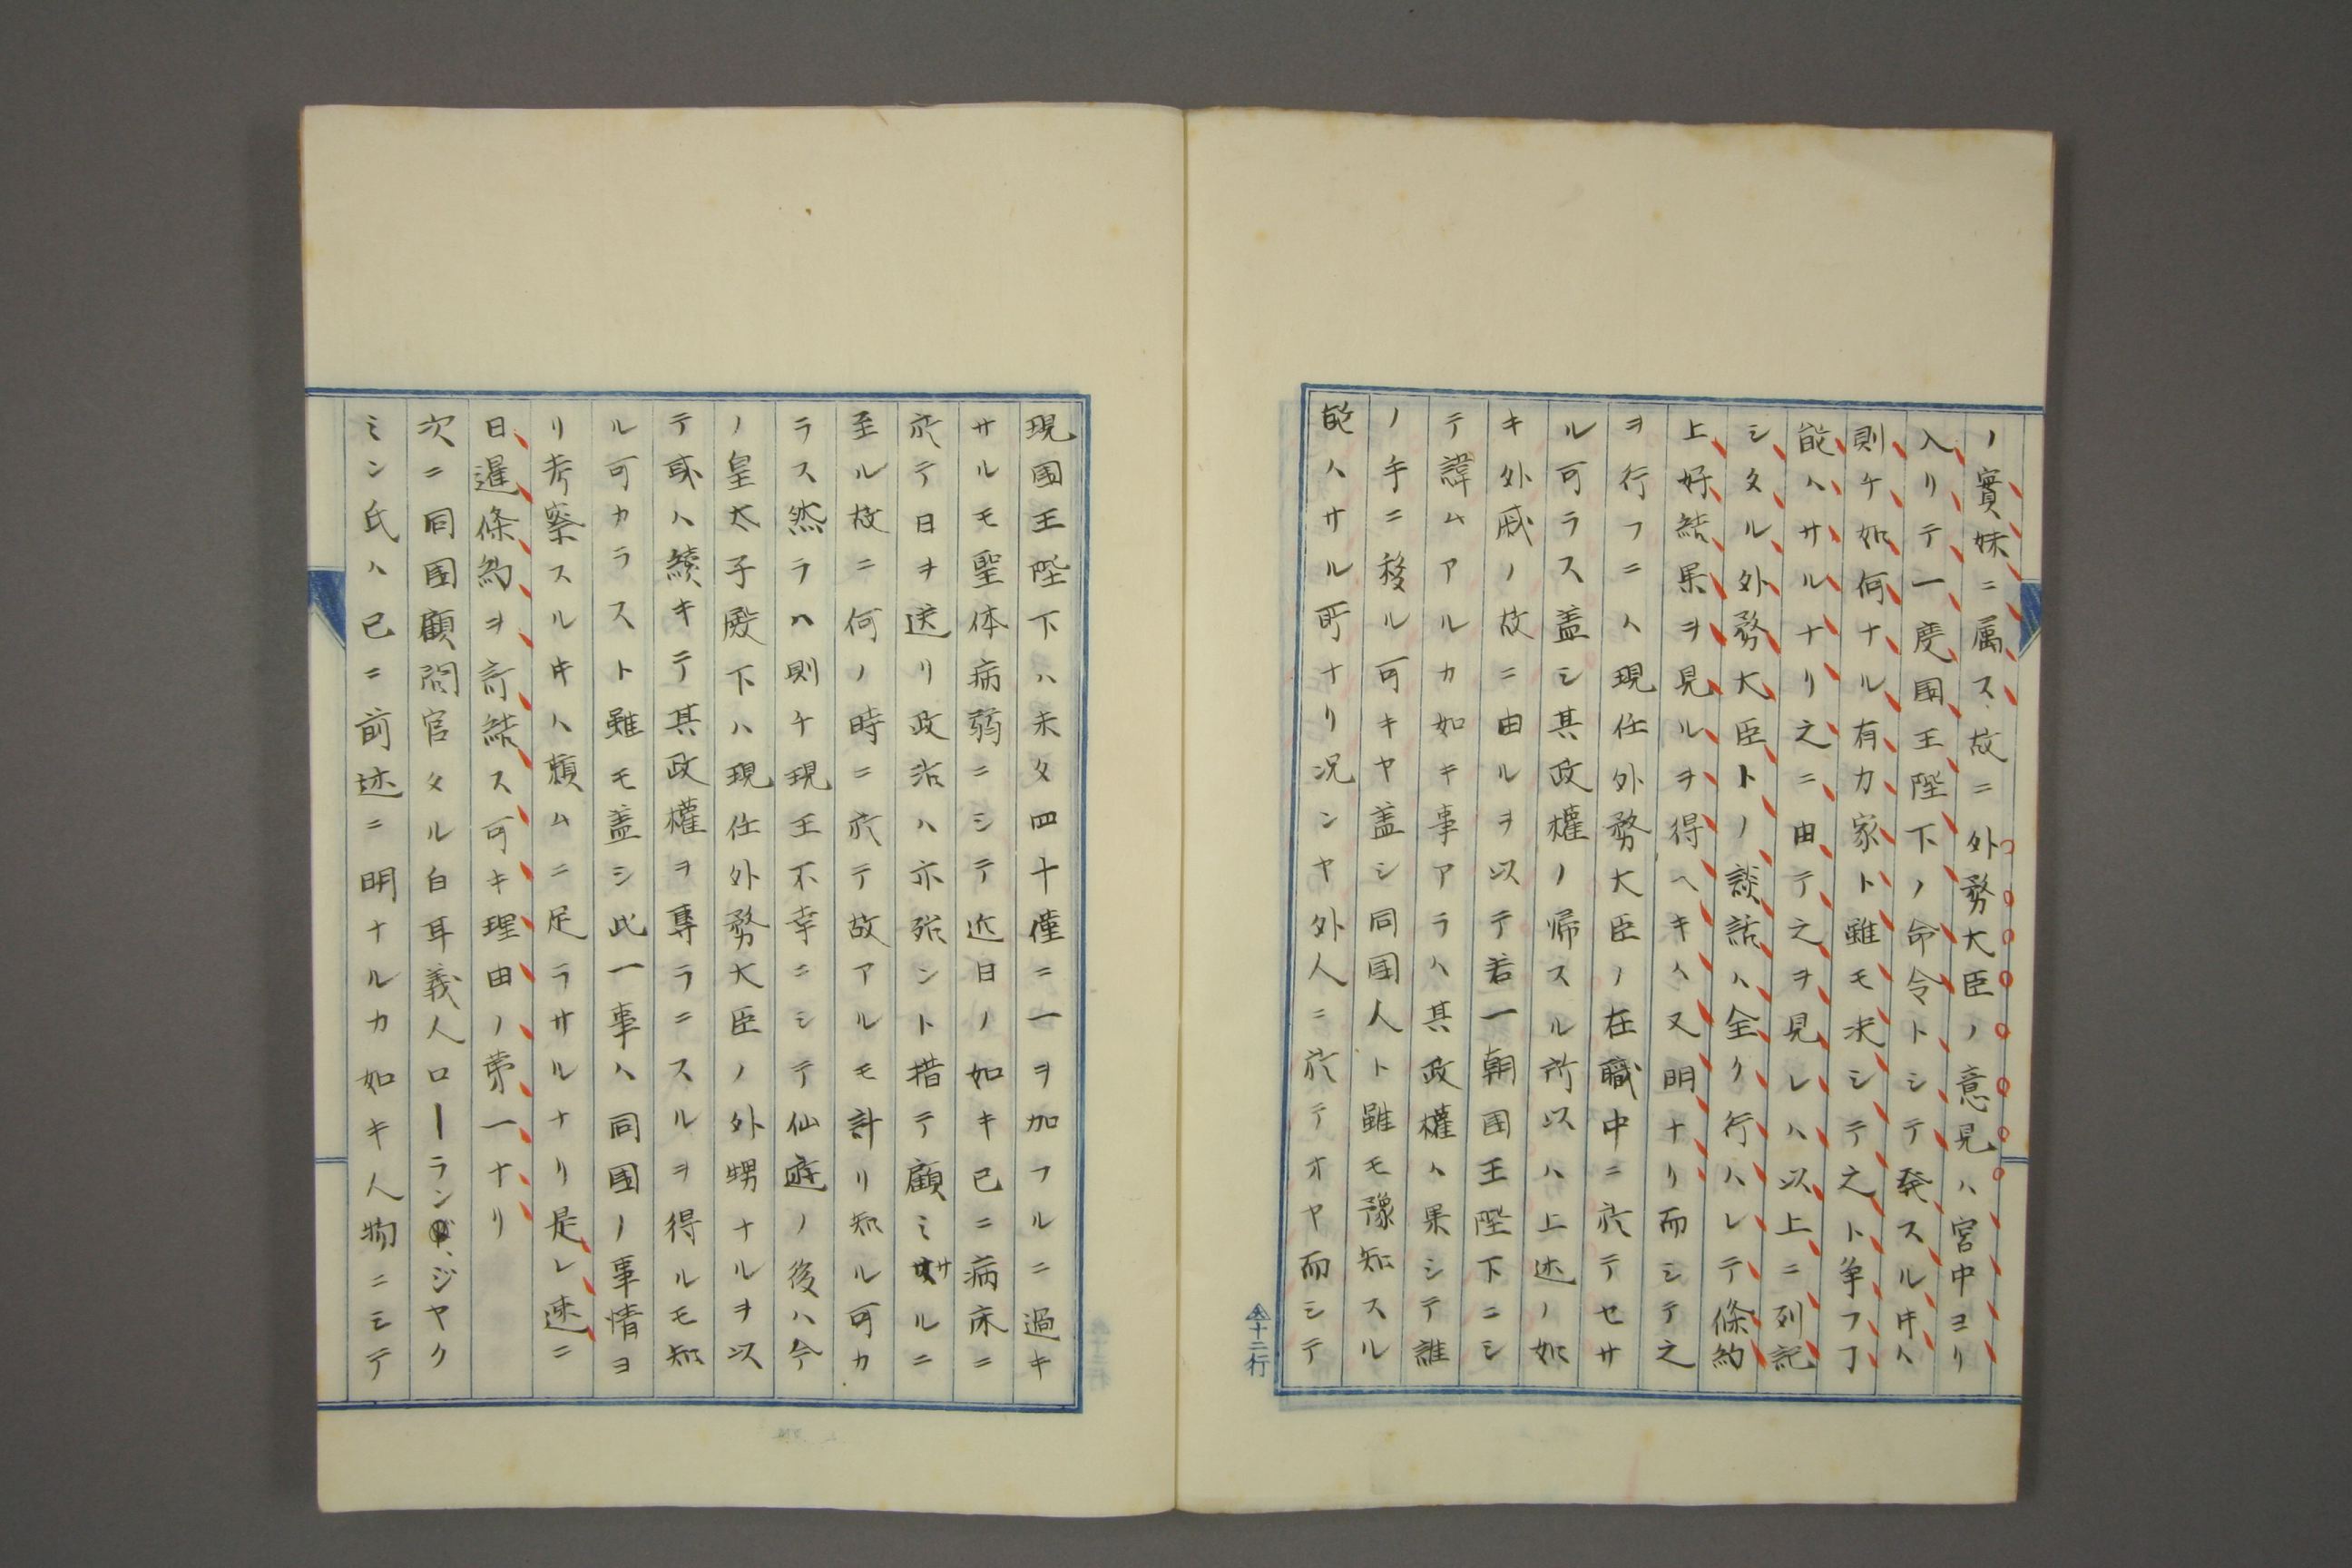 ノ實妹ニ属ス故ニ外務大臣ノ意見ハ宮中ヨリ
入リテ一度国王陛下ノ命令トシテ発スル𪜈ハ
則ケ如何ナル有力家ト雖モ决シテ之ト争フヿ
能ハサルナリ之ニ由テ之ヲ見レハ以上ニ列記
シタル外務大臣トノ談話ハ全ク行ハレテ條約
上好結果ヲ見ルヲ得ヘキハ又明ナリ而シテ之
ヲ行フニハ現任外務大臣ノ在職中ニ於テセサ
ル可ラス盖シ其政權ノ帰スル所以ハ上述ノ如
キ外戚ノ故ニ由ルヲ以テ若一朝国王陛下ニシ
テ諱ムアルカ如キ事アラハ其政權ハ果シテ誰
ノ手ニ移ル可キヤ盖シ同国人ト雖モ豫知スル
能ハサル所ナリ况ンヤ外人ニ於テオヤ而シテ
仝十二行
現国王陛下ハ未タ四十僅ニ一ヲ加フルニ過キ
サルモ聖体病弱ニシテ近日ノ如キ已ニ病床ニ
於テ日ヲ送リ政治ハ亦殆ント措テ顧ミサルニ
至ル故ニ何ノ時ニ於テ故アルモ計リ知ル可カ
ラス然ラハ則ケ現王不幸ニシテ仙遊ノ後ハ今
ノ皇太子殿下ハ現任外務大臣ノ外甥ナルヲ以
テ或ハ續キテ其政權ヲ專ラニスルヲ得ルモ知
ル可カラスト雖モ盖シ此一事ハ同國ノ事情ヨ
リ考察スル𪜈ハ頼ムニ足ラサルナリ是レ速ニ
日暹條約ヲ訂結ス可キ理由ノ第一ナリ
次ニ同国顧問官タル白耳義人ローランジヤク
ミン氏ハ已ニ前述ニ明ナルカ如キ人物ニシテ